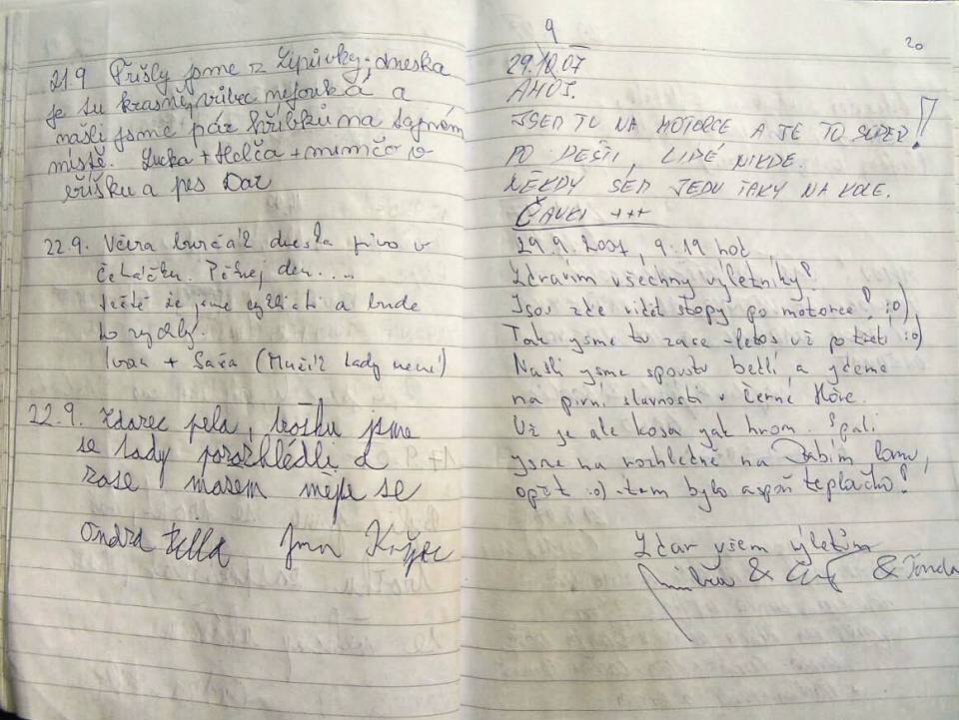 21.9 Přišly jsme z Lipůvky, dneska
je tu krasně, vůbec nefouká, a
našli jsme pár hříbků na tajném
místě. Lucka + Helča + mimčo v
bříšku a pes Dar
22.9. Včera burčál dneska pivo v
Pěknej den....
ještě že jsme cyklisti a bude
to rychlý.
Ivan + Sáša (Mužíž tady není)
22.9. Zdarec pela, trošku jsme
se tady porozhlédli a
zase mažem mějte se
Ondra Jan
20
9
29.10.07
AHOJ.
JSEM TU NA MOTORCE A JE TO SUPER!
PO DEŠTI, LIDÉ NIKDE.
NĚKDY SEM JEDU TAKY NA KOLE.
ČAVKI +++
29.9.2007, 9.19 hod.
Zdravím všechny výletníky!
Jsou zde vidět stopy po motorce! :o)
Tak jsme tu zase - letos už po třetí :o)
Našli jsme spoustu bedlí a jdeme
na pivní slavnosti v Černé Hoře.
Už je ale kosa jak hrom. Spali
jsme na rozhledně na Babím lomu,
opět :o) - tam bylo aspoň teplačko!
Zdar všem výletům
& & Tonda